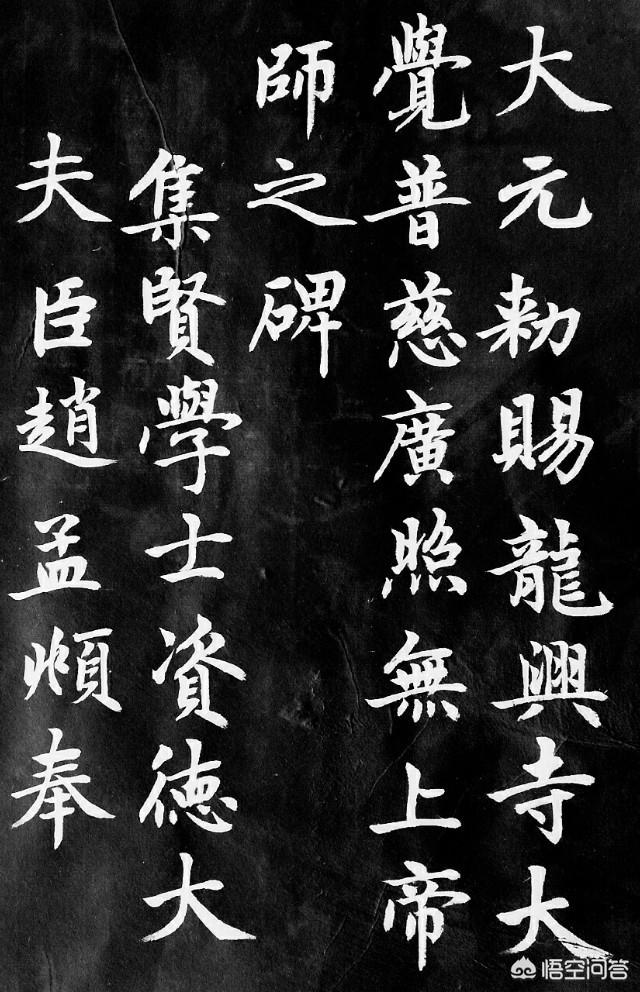 大元敕賜龍興寺大
覺普慈廣照無上帝
師之碑
集賢學士資德大
夫臣趙孟頫奉
悟空问答